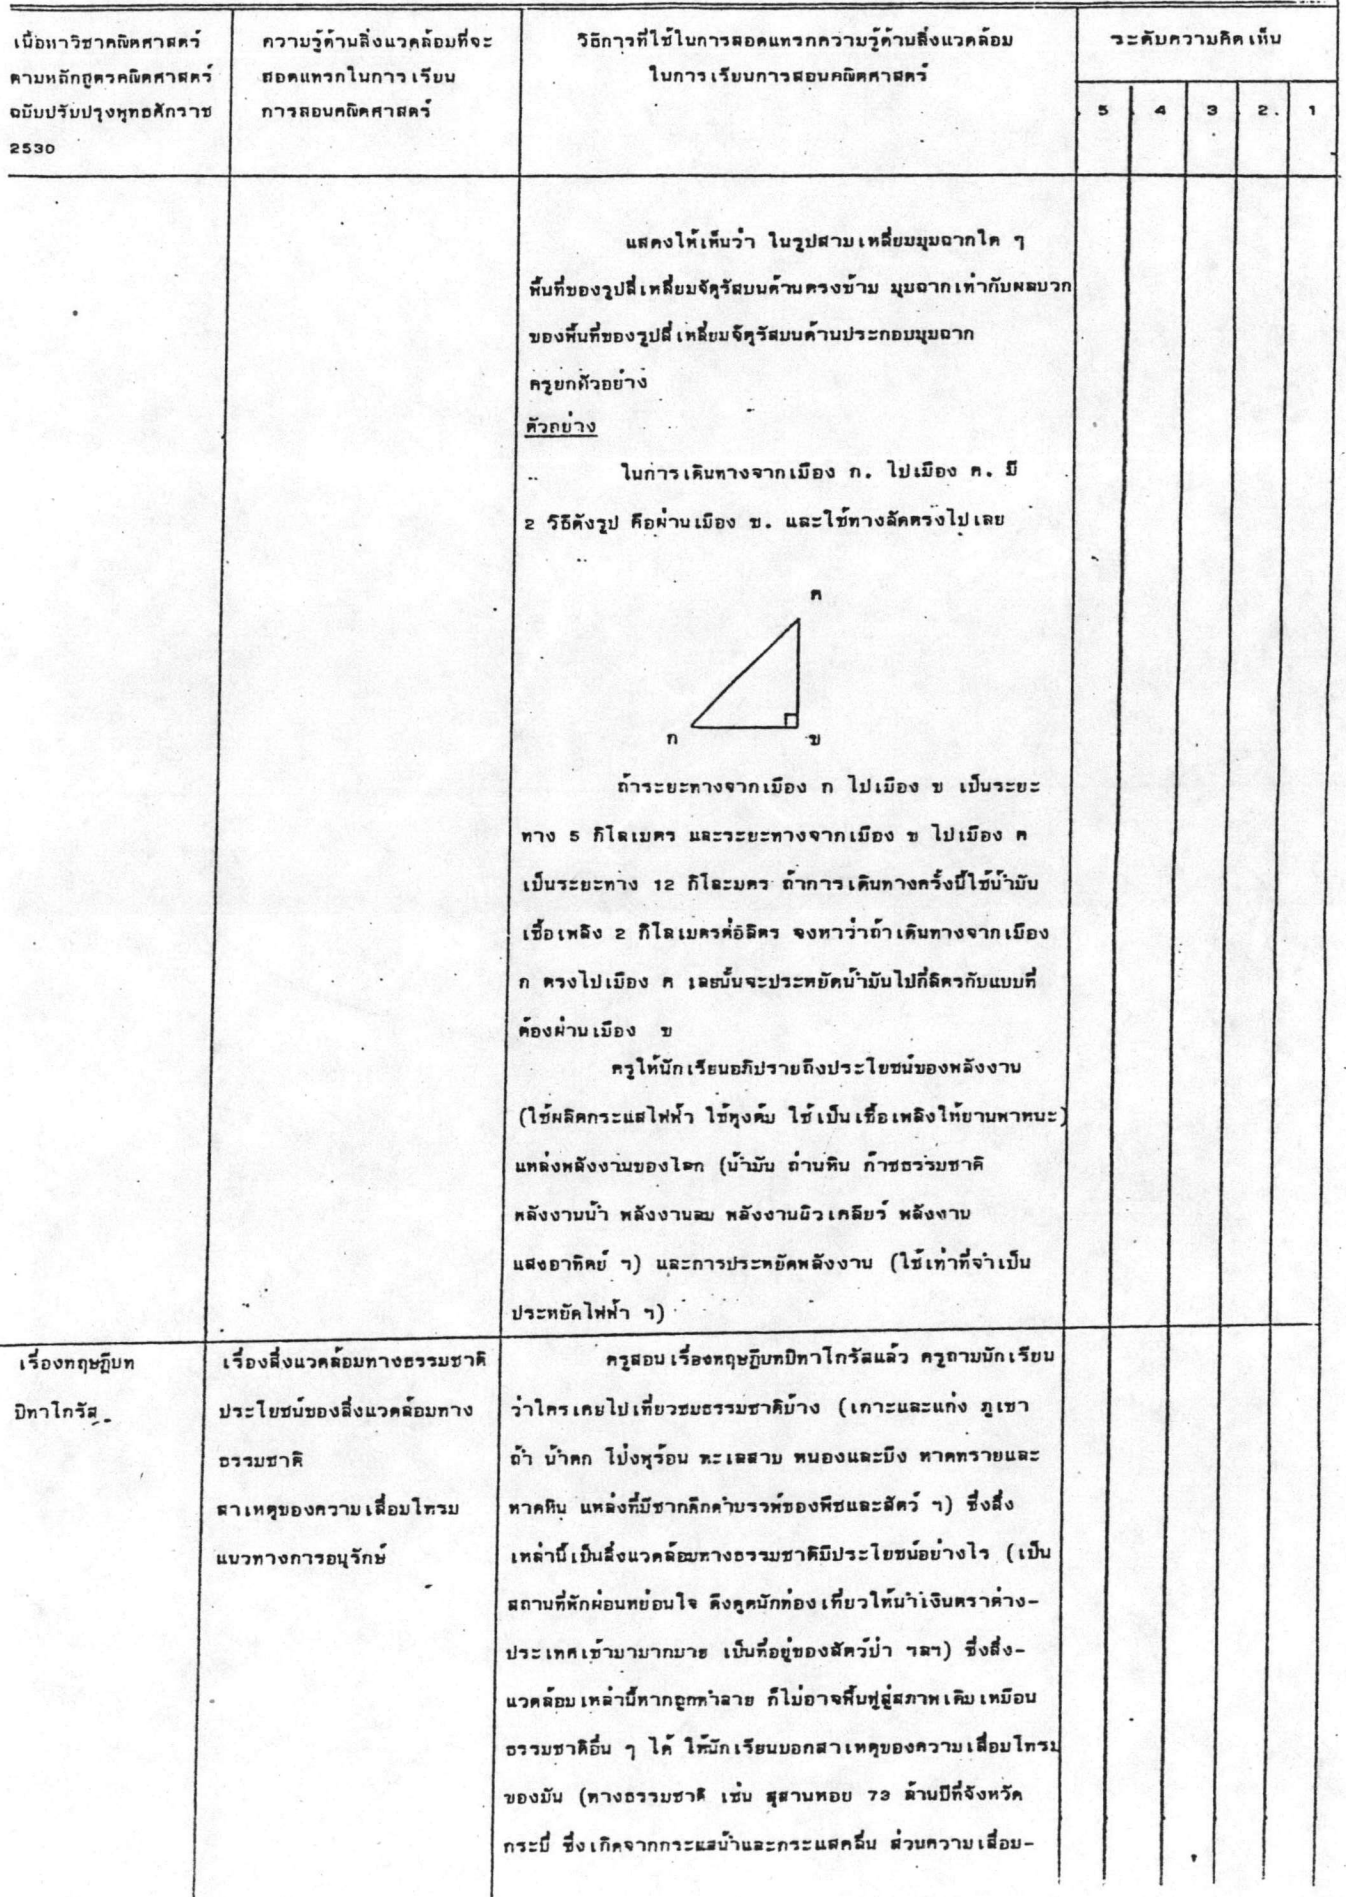 เนื้อหาวิชาคณิตศาสตร์
ตามหลักสูตรคณิตศาสตร์
ฉบับปรับปรุงพุทธศักราช
2530
ความรู้ด้านสิ่งแวดล้อมที่จะ
สอดแทรกในการเรียน
การสอนคณิตศาสตร์
วิธีการที่ใช้ในการสอดแทรกความรู้ด้านสิ่งแวดล้อม
ในการเรียนการสอนคณิตศาสตร์
ระดับความคิดเห็น
5 4 3 2. 1
แสดงให้เห็นว่า ในรูปสามเหลี่ยมมุมฉากใด ๆ
พื้นที่ของรูปสี่เหลี่ยมจัตุรัสบนด้านตรงข้าม มุมฉากเท่ากับผลบวก
ของพื้นที่ของรูปสี่เหลี่ยมจัตุรัสบนด้านประกอบมุมฉาก
ครูยกตัวอย่าง
ตัวอย่าง
ในการเดินทางจากเมือง ก. ไปเมือง ค. มี
2 วิธีดังรูป คือผ่านเมือง ข. และใช้ทางลัดตรงไปเลย
ค
ก ข
ถ้าระยะทางจากเมือง ก ไปเมือง ข เป็นระยะ
ทาง 5 กิโลเมตร และระยะทางจากเมือง ข ไปเมือง ค
เป็นระยะทาง 12 กิโละมตร ถ้าการเดินทางครั้งนี้ใช้น้ำมัน
เชื้อเพลิง 2 กิโลเมตรต่อลิตร จงหาว่าถ้าเดินทางจากเมือง
ก ตรงไปเมือง ค เลยนั้นจะประหยัดน้ำมันไปกี่ลิตรกับแบบที่
ต้องผ่านเมือง ข
ครูให้นักเรียนอภิปรายถึงประโยชน์ของพลังงาน
(ใช้ผลิตกระแสไฟฟ้า ใช้หุงต้ม ใช้เป็นเชื้อเพลิงให้ยานพาหนะ)
แหล่งพลังงานของโลก (น้ำมัน ถ่านหิน ก๊าซธรรมชาติ
พลังงานน้ำ พลังงานลม พลังงานนิวเคลียร์ พลังงาน
แสงอาทิตย์ ฯ) และการประหยัดพลังงาน (ใช้เท่าที่จำเป็น
ประหยัดไฟฟ้า ฯ)
เรื่องทฤษฎีบท
ปิทาโกรัส
เรื่องสิ่งแวดล้อมทางธรรมชาติ
ประโยชน์ของสิ่งแวดล้อมทาง
ธรรมชาติ
สาเหตุของความเสื่อมโทรม
แนวทางการอนุรักษ์
ครูสอนเรื่องทฤษฎีบทปิทาโกรัสแล้ว ครูถามนักเรียน
ว่าใครเคยไปเที่ยวชมธรรมชาติบ้าง (เกาะและแก่ง ภูเขา
ถ้ำ น้ำตก โป่งพุร้อน ทะเลสาบ หนองและบึง หาดทรายและ
หาดหิน แหล่งที่มีซากดึกดำบรรพ์ของพืชและสัตว์ ฯ) ซึ่งสิ่ง
เหล่านี้เป็นสิ่งแวดล้อมทางธรรมชาติมีประโยชน์อย่างไร (เป็น
สถานที่พักผ่อนหย่อนใจ ดึงดูดนักท่องเที่ยวให้นำเงินตราต่าง-
ประเทศเข้ามามากมาย เป็นที่อยู่ของสัตว์ป่า ฯลฯ) ซึ่งสิ่ง-
แวดล้อมเหล่านี้หากถูกทำลาย ก็ไม่อาจฟื้นฟูสู่สภาพเดิมเหมือน
ธรรมชาติอื่น ๆ ได้ ให้นักเรียนบอกสาเหตุของความเสื่อมโทรม
ของมัน (ทางธรรมชาติ เช่น สุสานหอย 73 ล้านปีที่จังหวัด
กระบี่ ซึ่งเกิดจากกระแสน้ำและกระแสคลื่น ส่วนความเสื่อม-